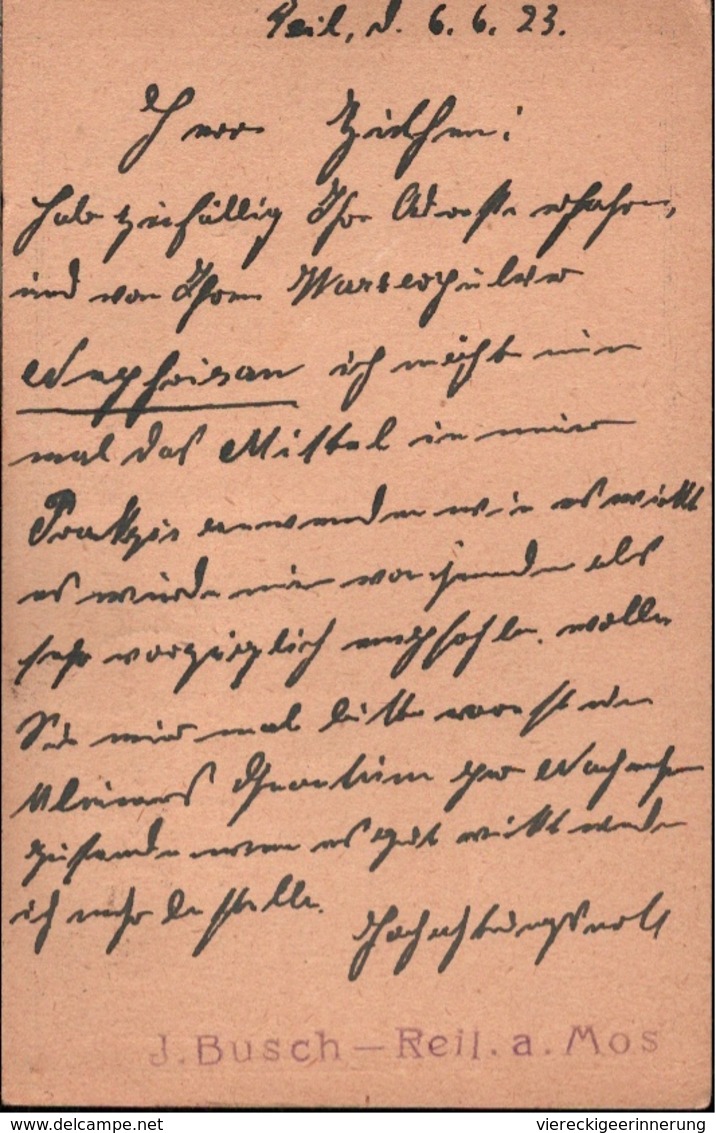 Reil, d. 6. 6. 23.
Herr Zielhen!
Habe zufällig Ihre Adresse erfahren,
und von Ihrem Wurzelpulver
Nephrisan ich möchte nun
mal das Mittel in meine
Praktzis anwenden wie es wirkt
es wurde mir von jemanden als
sehr vorzüglich empfohlen. wollen
Sie mir mal bitte vorerst ein
kleineres Quantum per Nachnahme
zusenden wenn es gut wirkt werde
ich mehr bestellen.
Hochachtungsvoll
J. Busch – Reil. a. Mos
www.delcampe.net
viereckigeerinnerung